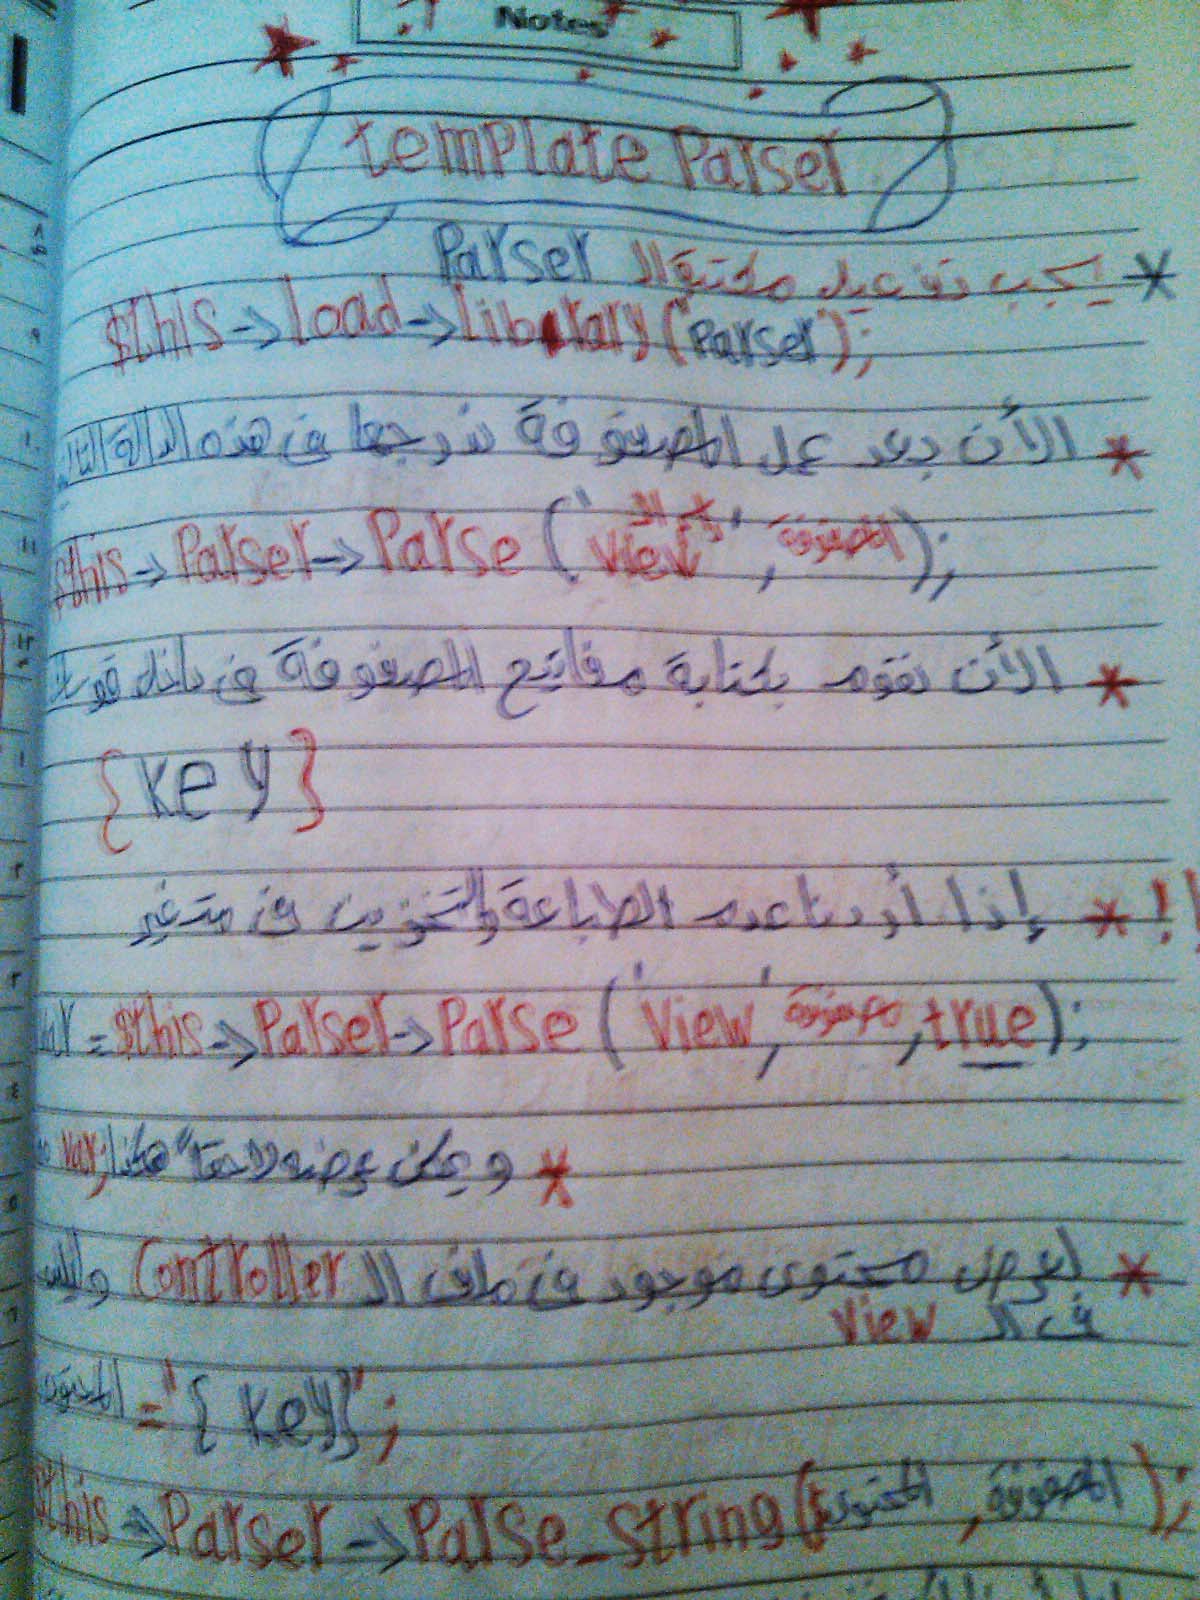 Notes
template Parser
* يجب تفعيل مكتبة الـ Parser
$this->load->library('Parser');
* الأن بعد عمل المصفوفة ندرجها في هذه الدالة
$this->Parser->Parse('view', المصفوفة);
* الأن نقوم بكتابة مفاتيح المصفوفة في داخل
{key}
!! * إذا أردنا عدم الطباعة والتخزين في متغير
= $this->Parser->Parse('View', مصفوفة, true);
* و يمكن عرضه لاحقاً هكذا var;
* لعرض محتوى موجود في ملف الـ Controller وليس
في الـ View
المحتوى = '{key}';
$this->Parser->Parse_string(المحتوى, المصفوفة);